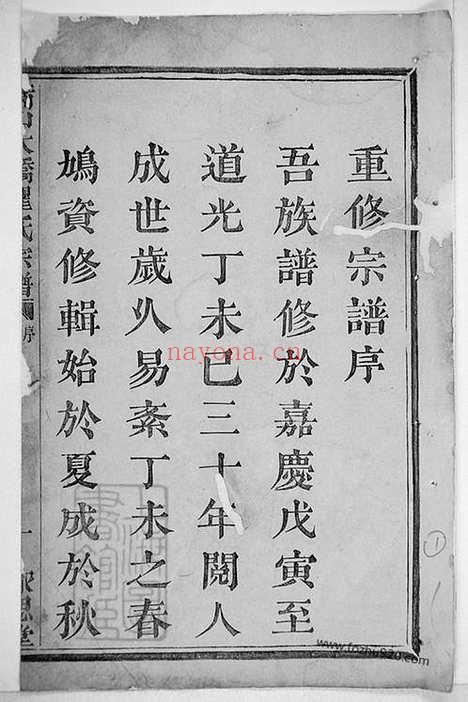 重修宗譜序
吾族譜修於嘉慶戊寅至
道光丁未已三十年閱人
成世歲久易紊丁未之春
鳩資修輯始於夏成於秋
大橋瞿氏宗譜
序
一
思堂
1
nayona.cn
www.fozhu920.com